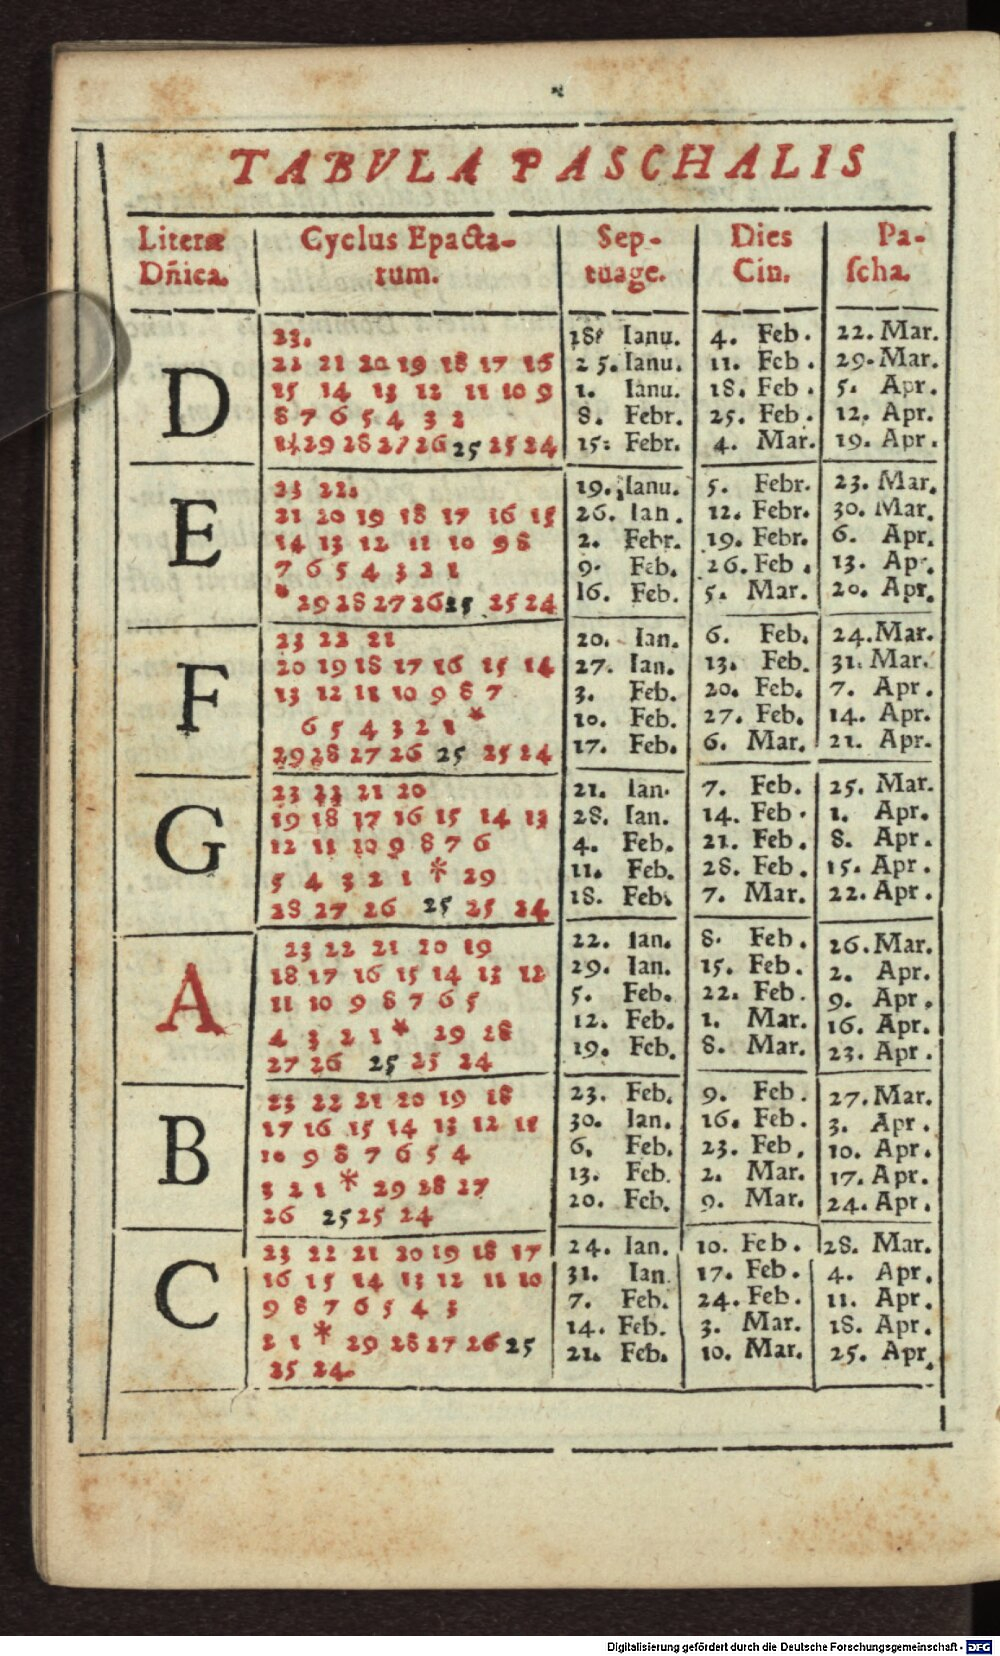 TABVLA PASCHALIS
Literæ Dñica. Cyclus Epacta-rum. Sep-tuage. Dies Cin. Pa-ſcha.
D
23. 18 Ianu. 4. Feb. 22. Mar.
22 21 20 19 18 17 16 25. Ianu. 11. Feb. 29. Mar.
15 14 13 12 11 10 9 1. Ianu. 18. Feb. 5. Apr.
8 7 6 5 4 3 2 8. Febr. 25. Feb. 12. Apr.
1 * 29 28 27 26 25 25 24 15. Febr. 4. Mar. 19. Apr.
E
23 22. 19. Ianu. 5. Febr. 23. Mar.
21 20 19 18 17 16 15 26. Ian. 12. Febr. 30. Mar.
14 13 12 11 10 9 8 2. Febr. 19. Febr. 6. Apr.
7 6 5 4 3 2 1 9. Feb. 26. Feb. 13. Apr.
* 29 28 27 26 25 25 24 16. Feb. 5. Mar. 20. Apr.
F
23 22 21 20. Ian. 6. Feb. 24. Mar.
20 19 18 17 16 15 14 27. Ian. 13. Feb. 31. Mar.
13 12 11 10 9 8 7 3. Feb. 20. Feb. 7. Apr.
6 5 4 3 2 1 * 10. Feb. 27. Feb. 14. Apr.
29 28 27 26 25 25 24 17. Feb. 6. Mar. 21. Apr.
G
23 22 21 20 21. Ian. 7. Feb. 25. Mar.
19 18 17 16 15 14 13 28. Ian. 14. Feb. 1. Apr.
12 11 10 9 8 7 6 4. Feb. 21. Feb. 8. Apr.
5 4 3 2 1 * 29 11. Feb. 28. Feb. 15. Apr.
28 27 26 25 25 24 18. Feb. 7. Mar. 22. Apr.
A
23 22 21 20 19 22. Ian. 8. Feb. 26. Mar.
18 17 16 15 14 13 12 29. Ian. 15. Feb. 2. Apr.
11 10 9 8 7 6 5 5. Feb. 22. Feb. 9. Apr.
4 3 2 1 * 29 28 12. Feb. 1. Mar. 16. Apr.
27 26 25 25 24 19. Feb. 8. Mar. 23. Apr.
B
23 22 21 20 19 18 23. Feb. 9. Feb. 27. Mar.
17 16 15 14 13 12 11 30. Ian. 16. Feb. 3. Apr.
10 9 8 7 6 5 4 6. Feb. 23. Feb. 10. Apr.
3 2 1 * 29 28 27 13. Feb. 2. Mar. 17. Apr.
26 25 25 24 20. Feb. 9. Mar. 24. Apr.
C
23 22 21 20 19 18 17 24. Ian. 10. Feb. 28. Mar.
16 15 14 13 12 11 10 31. Ian. 17. Feb. 4. Apr.
9 8 7 6 5 4 3 7. Feb. 24. Feb. 11. Apr.
2 1 * 29 28 27 26 25 14. Feb. 3. Mar. 18. Apr.
25 24. 21. Feb. 10. Mar. 25. Apr.
Digitalisierung gefördert durch die Deutsche Forschungsgemeinschaft - DFG